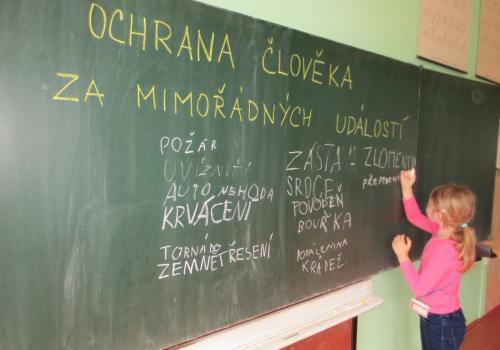 OCHRANA ČLOVĚKA
ZA MIMOŘÁDNÝCH UDÁLOSTÍ
POŽÁR
UVÍZNUTÍ
AUTONEHODA
KRVÁCENÍ
TORNÁDO
ZEMNETŘESENÍ
ZÁSTAVA
SRDCE
POVODEŇ
BOUŘKA
POPÁLENINA
KRÁDEŽ
ZLOMENINA